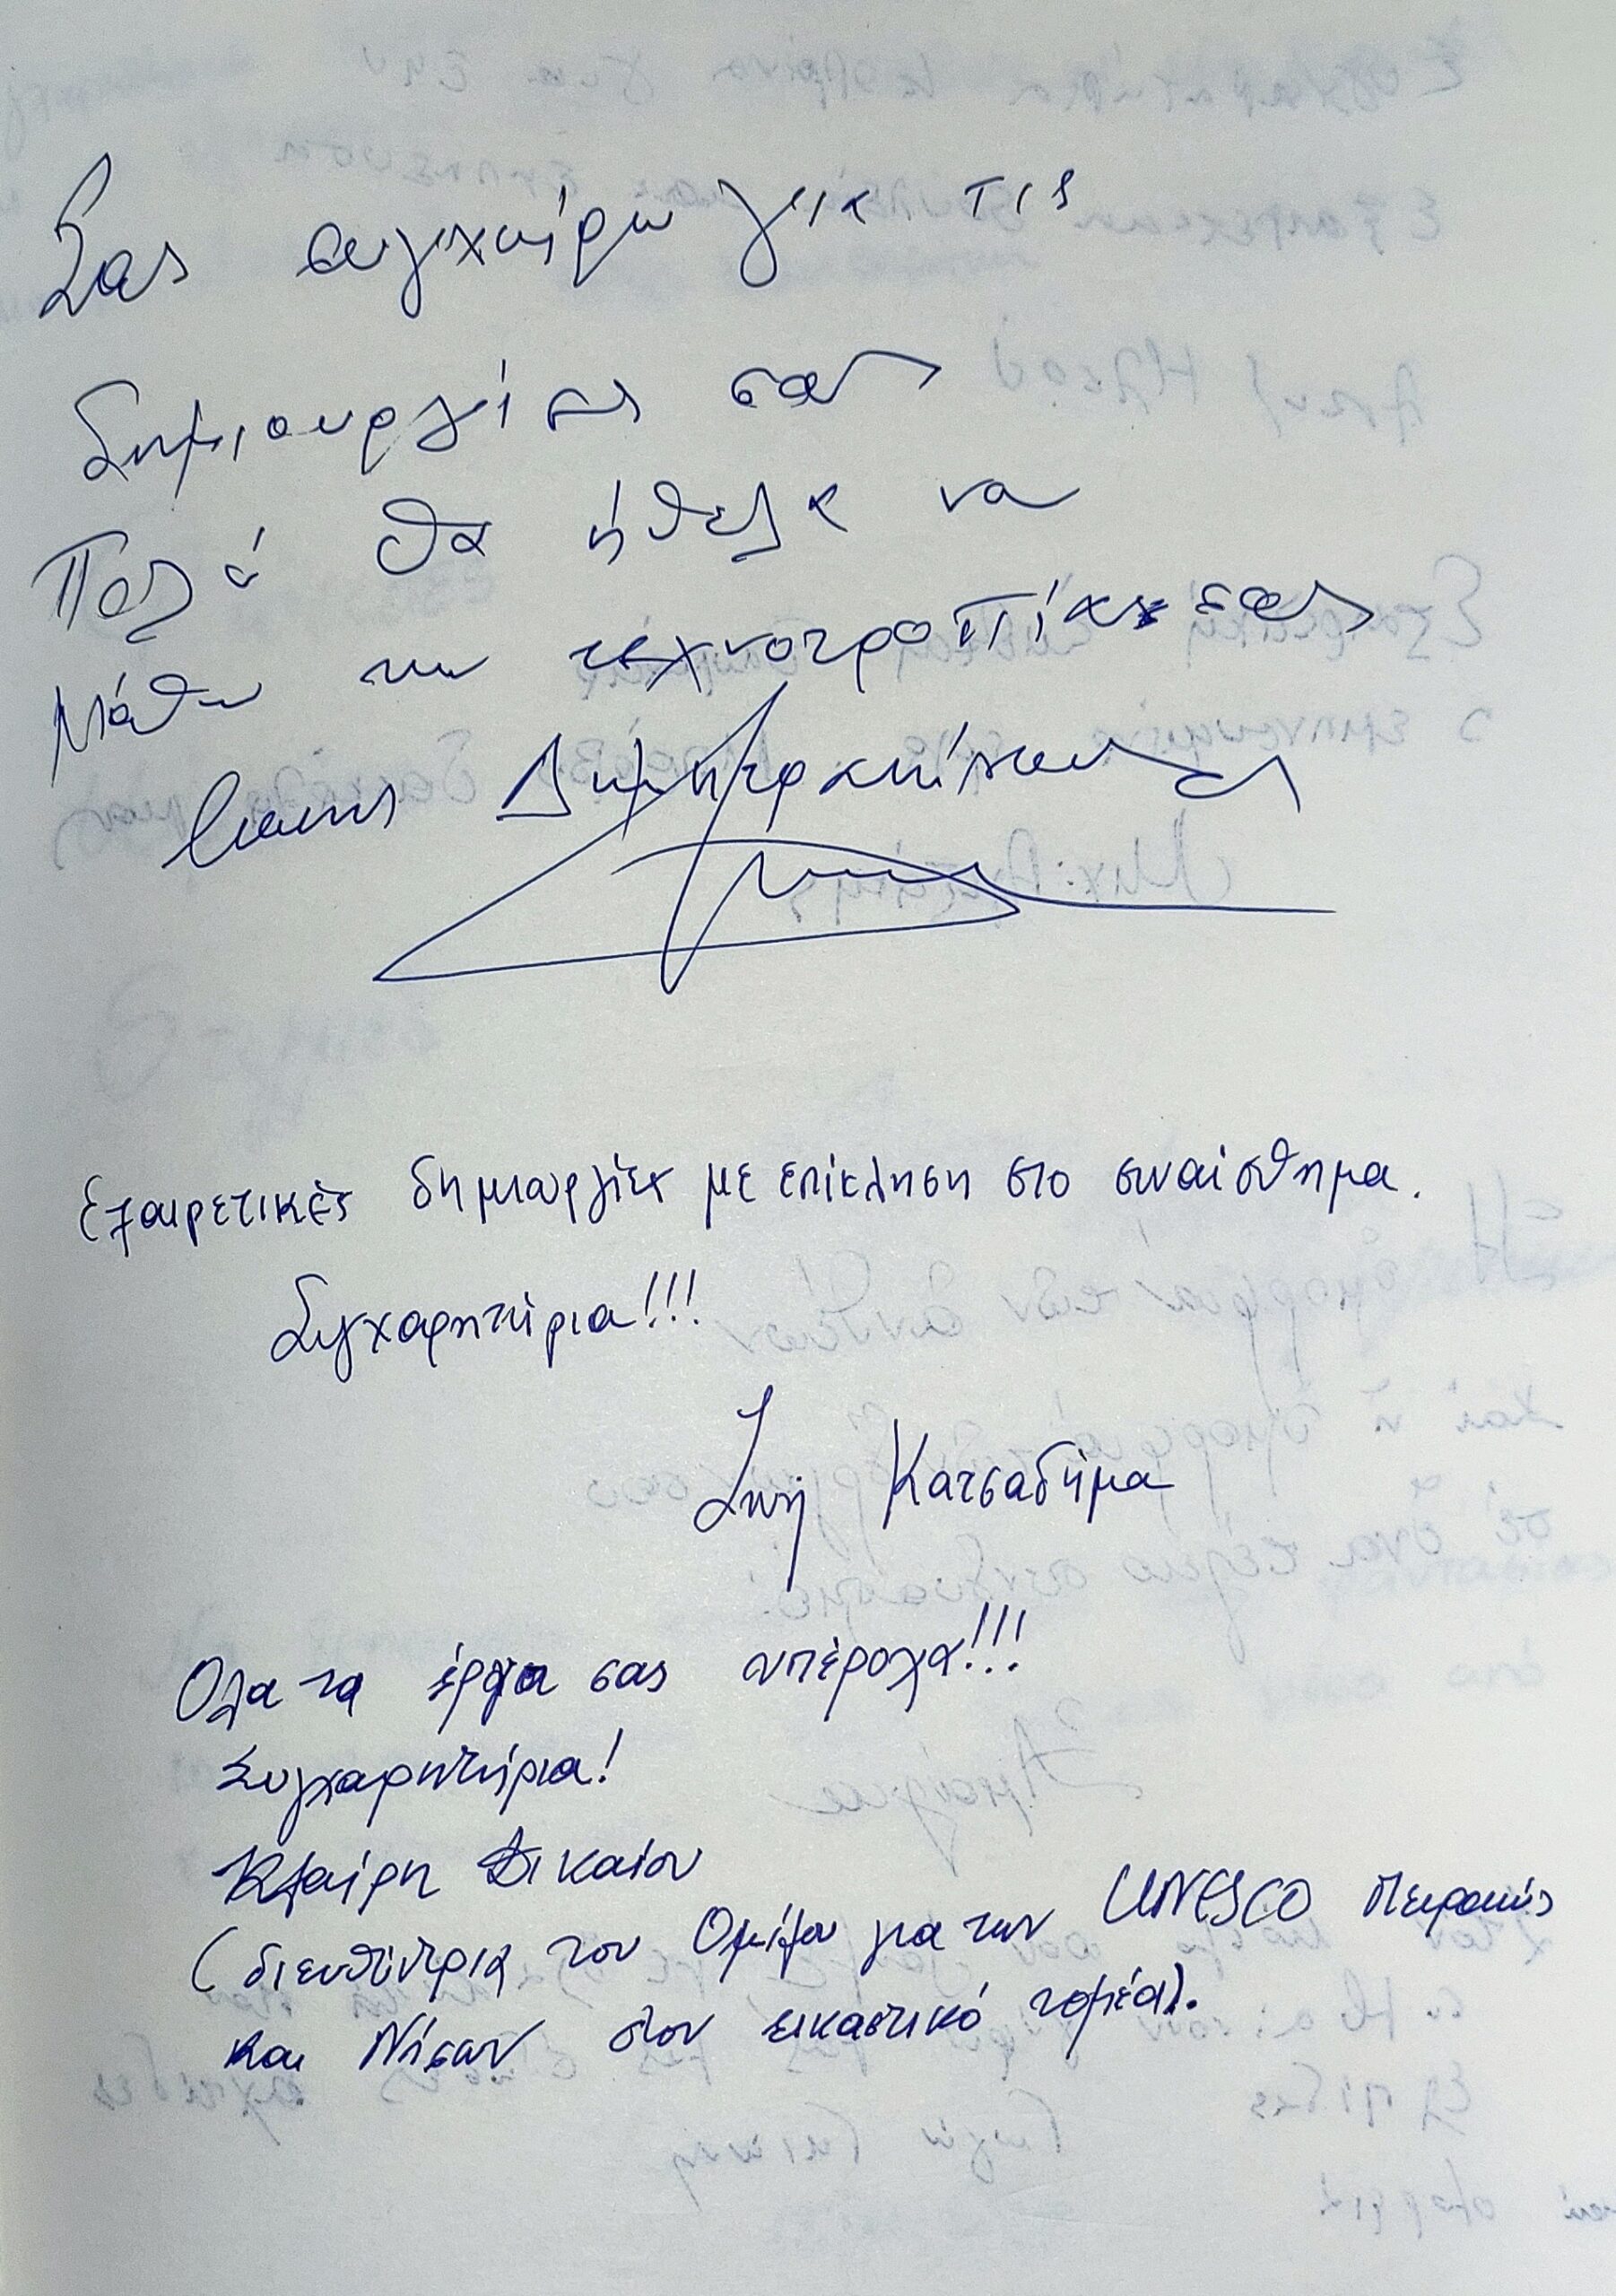 Σας συγχαίρω για τις
δημιουργίες σας
Πολύ θα ήθελα να
μάθω την τεχνοτροπία σας
Εξαιρετικές δημιουργίες με επίκληση στο συναίσθημα.
Συγχαρητήρια!!!
Ζωή Κατσαδήμα
Ολα τα έργα σας υπέροχα!!!
Συγχαρητήρια!
Κλαίρη Δικαίου
(διευθύντρια του Ομίλου για την UNESCO Πειραιώς
και Νήσων στον εικαστικό τομέα).